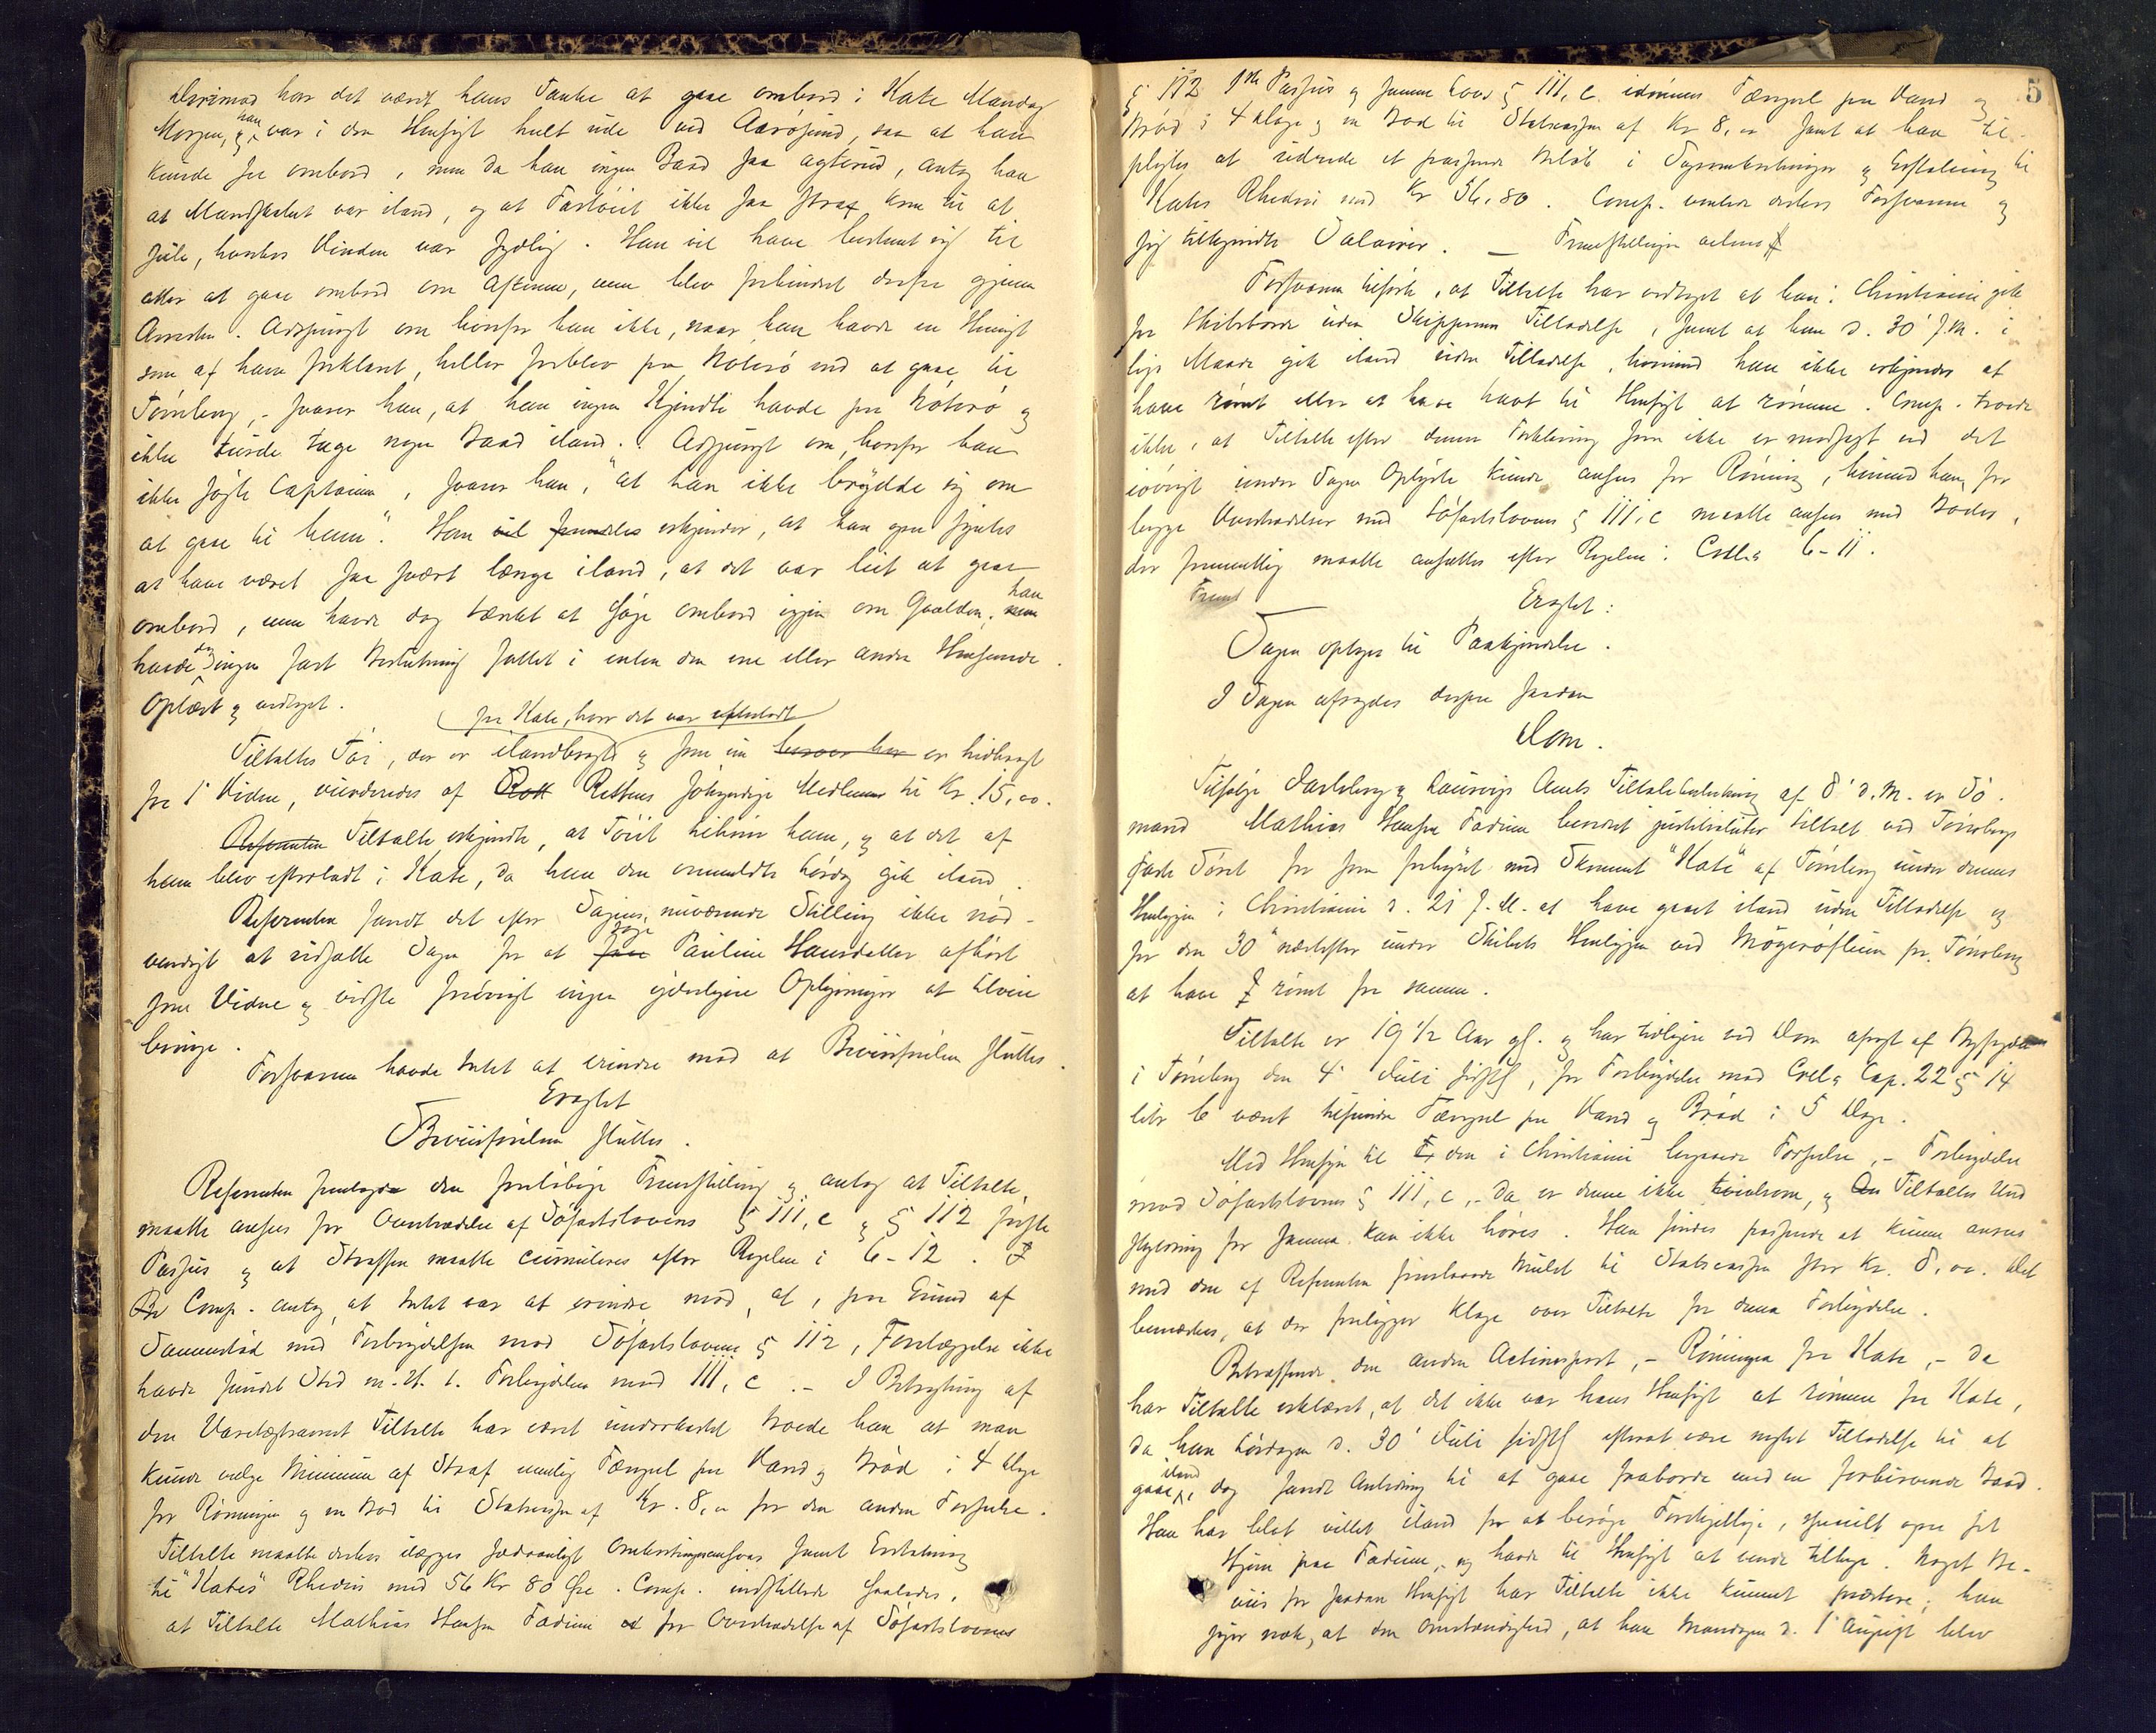 derimod har det været hans Tanke at gaae ombord i Kate Mandag
Morgen, og han var i den Hensigt helt ude ved Aarøsund, saa at han
kunde see ombord, men da han ingen Baad saa agterud, antog han
at Mandskabet var iland, og at Fartøiet ikke saa strax kom til at
seile, hvorhos Vinden var sydlig. Han vil have bestemt sig til
atter at gaae ombord om Aftenen, men blev forhindret derfra gjennem
Arresten. Adspurgt om hvorfor han ikke, naar han havde en Hensigt
som af ham forklaret, heller forblev paa Nøterø end at gaae til
Tønsberg, - svarer han, at han ingen Kjendte havde paa Nøterø og
ikke turde tage nogen Baad iland. Adspurgt om hvorfor han
ikke søgte Captainen, svarer han, "at han ikke brydde sig om
at gaae til ham". Han vil fremdeles erkjender, at han ogsaa syntes
at have været saa svært længe iland, at det var leit at gaae
ombord, men havde dog tænkt at søge ombord igjen om Qvelden; han
havde dog ingen fast Beslutning fattet i enten den ene eller anden Henseende.
Oplæst og vedtaget.
fra Kate, hvor det var efterladt
Tiltaltes Tøi, der er ilandbragt og som nu beroer her er hidbragt
fra 1' Vidne, vurderedes af Rett Rettens søkyndige Medlemmer til Kr. 15,00.
Referenten Tiltalte erkjendte, at Tøiet tilhører ham, og at det af
ham blev efterladt i Kate, da han den ommeldte Lørdag gik iland.
Referenten fandt det efter Sagens nuværende Stilling ikke nød-
vendigt at udsætte Sagen for at faae søge Pauline Hansdatter afhørt
som Vidne og vidste forøvrigt ingen yderligere Oplysninger at tilveie
bringe.
Forsvareren havde Intet at erindre mod at Beviisførselen sluttes.
Eragtet
Beviisførselen sluttes.
Referenten fremlagde den foreløbige Fremstilling og antog at Tiltalte
maatte ansees for Overtrædelse af Søfartslovens § 111, c og § 112 første
Passus og at Straffen maatte cumuleres efter Regelen i 6-12.
Comp. antog, at Intet var at erindre mod, at, paa Grund af
Sammenstød med Forbrydelsen mod Søfartslovens § 112, Forelæggelse ikke
havde fundet Sted m. H. t. Forbrydelsen mod 111, c. - I Betragtning af
den Varetægtsarrest Tiltalte har været underkastet troede han at man
kunde vælge Minimum af Straf nemlig Fængsel paa Vand og Brød i 4 Dage
for Rømningen og en Bod til Statscassen af Kr. 8,00 for den anden Forseelse.
Tiltalte maatte derhos ilægges sædvanligt Omkostningsansvar samt Erstatning
til "Kates" Rhederi med 56 Kr 80 Øre. Comp. indstillede saaledes,
at Tiltalte Mathias Hansen Fadum for Overtrædelse af Søfartslovens
5
§ 112 1ste Passus og samme Lovs § 111, c. idømmes Fængsel paa Vand og
Brød i 4 Dage og en Bod til Statscassen af Kr 8,00 samt at han til-
pligtes at udrede et passende Beløb i Sagsomkostninger og Erstatning til
Kates Rhederi med Kr 56,80. Comp. ventede derhos Forsvareren og
sig tilkjendt Salairer. - Fremstillingen vedlægges
Forsvareren tilførte, at Tiltalte har vedtaget at han i Christiania gik
fra Skibsborde uden Skipperens Tilladelse, samt at han d. 30' f. M. i
lige Maade gik iland uden Tilladelse, hvorimod han ikke erkjender at
have rømt eller at have havt til Hensigt at rømme. Comp. troede
ikke, at Tiltalte efter denne Forklaring som ikke er modsagt ved det
iøvrigt under Sagen Oplyste kunde ansees for Rømning, hvorimod han for
begge Overtrædelser mod Søfartslovens § 111, c maatte ansees med Bøder,
der formentlig maatte ansættes efter Regelen i Crll.s 6-11.
Eragtet:
Sagen optages til Paakjendelse.
I Sagen afsagdes derpaa saadan
Dom.
Tilfølge Jarlsberg og Laurvigs Amts Tiltalebeslutning af 8' d. M. er Sø-
mand Mathias Hansen Fadum bleven justitialiter tiltalt ved Tønsbergs
faste Søret for som forhyret med Skonnert "Kate" af Tønsberg under dennes
Henliggen i Christiania d. 21 f. M. at have gaaet iland uden Tilladelse og
for den 30' næstefter under Skibets Henliggen ved Mågerøfluen pr. Tønsberg
at have rømt fra samme.
Tiltalte er 19 1/2 Aar gl. og har tidligere ved Dom afsagt af Byfogden
i Tønsberg den 4' Juli sidstl., for Forbrydelse mod Crll.s Cap. 22 § 14
litr b været tilfunden Fængsel paa Vand og Brød i 5 Dage.
Med Hensyn til den i Christiania begaaede Forseelse, - Forbrydelse
mod Søfartslovens § 111, c, - da er denne ikke tvivlsom, og Tiltaltes Und
skyldning for samme kan ikke høres. Han findes passende at kunne ansees
med den af Referenten foreslaaede Mulct til Statscassen stor Kr. 8,00. Det
bemærkes, at der foreligger Klage over Tiltalte for denne Forbrydelse.
Betræffende den anden Actionspost, - Rømningen fra Kate, - da
har Tiltalte erklæret, at det ikke var hans Hensigt at rømme fra Kate,
da han Lørdagen d. 30' Juli sidstl. efterat være nægtet Tilladelse til at
gaae iland, dog fandt Anledning til at gaae fraborde med en forbiroende Baad.
Han har blot villet iland for at besøge Forskjellige, specielt ogsaa sit
Hjem paa Fadum, og havde til Hensigt at vende tilbage. Noget Be-
viis for saadan Hensigt har Tiltalte ikke kunnet præstere; han
siger nok, at den Omstændighed, at han Mandagen d. 1' August blev